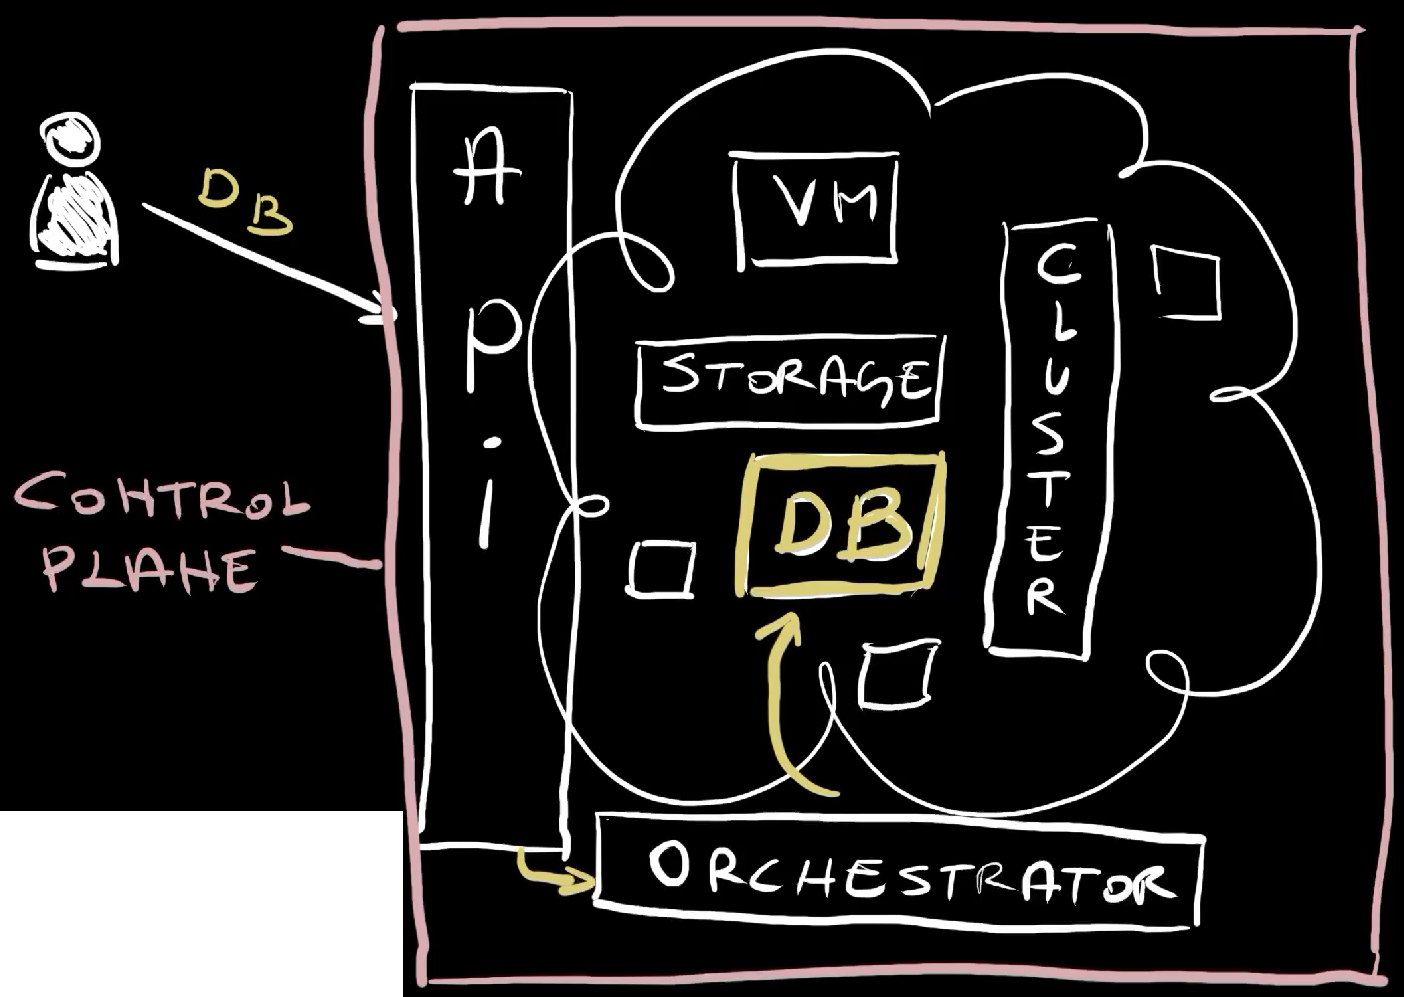 DB
CONTROL
PLANE
APi
VM
STORAGE
DB
CLUSTER
ORCHESTRATOR